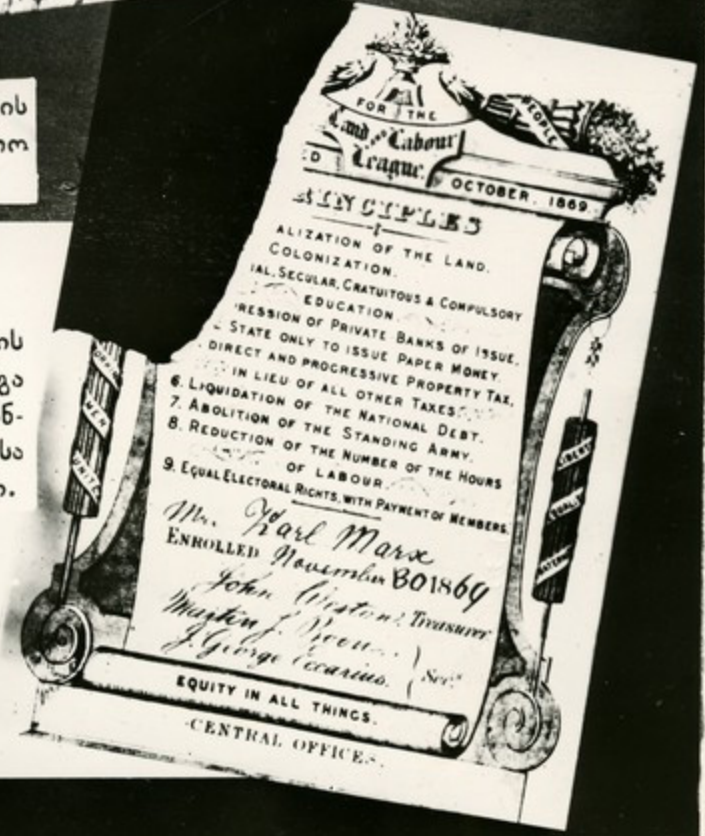 ის
იო
ის
გა
ნ-
სა
ი.
PEOPLE
FOR THE
Land AND Labour
League
D OCTOBER, 1869.
RINCIPLES
ALIZATION OF THE LAND.
COLONIZATION.
IAL, SECULAR, GRATUITOUS & COMPULSORY
EDUCATION.
RESSION OF PRIVATE BANKS OF ISSUE.
STATE ONLY TO ISSUE PAPER MONEY.
DIRECT AND PROGRESSIVE PROPERTY TAX,
IN LIEU OF ALL OTHER TAXES.
6. LIQUIDATION OF THE NATIONAL DEBT.
7. ABOLITION OF THE STANDING ARMY.
8. REDUCTION OF THE NUMBER OF THE HOURS
OF LABOUR.
9. EQUAL ELECTORAL RIGHTS, WITH PAYMENT OF MEMBERS.
MEN
UNITE
Mr. Karl Marx
ENROLLED November 30 1869
John Weston, Treasurer
Martin J. Boon
J. George Eccarius. Secs
EQUITY IN ALL THINGS.
CENTRAL OFFICES.